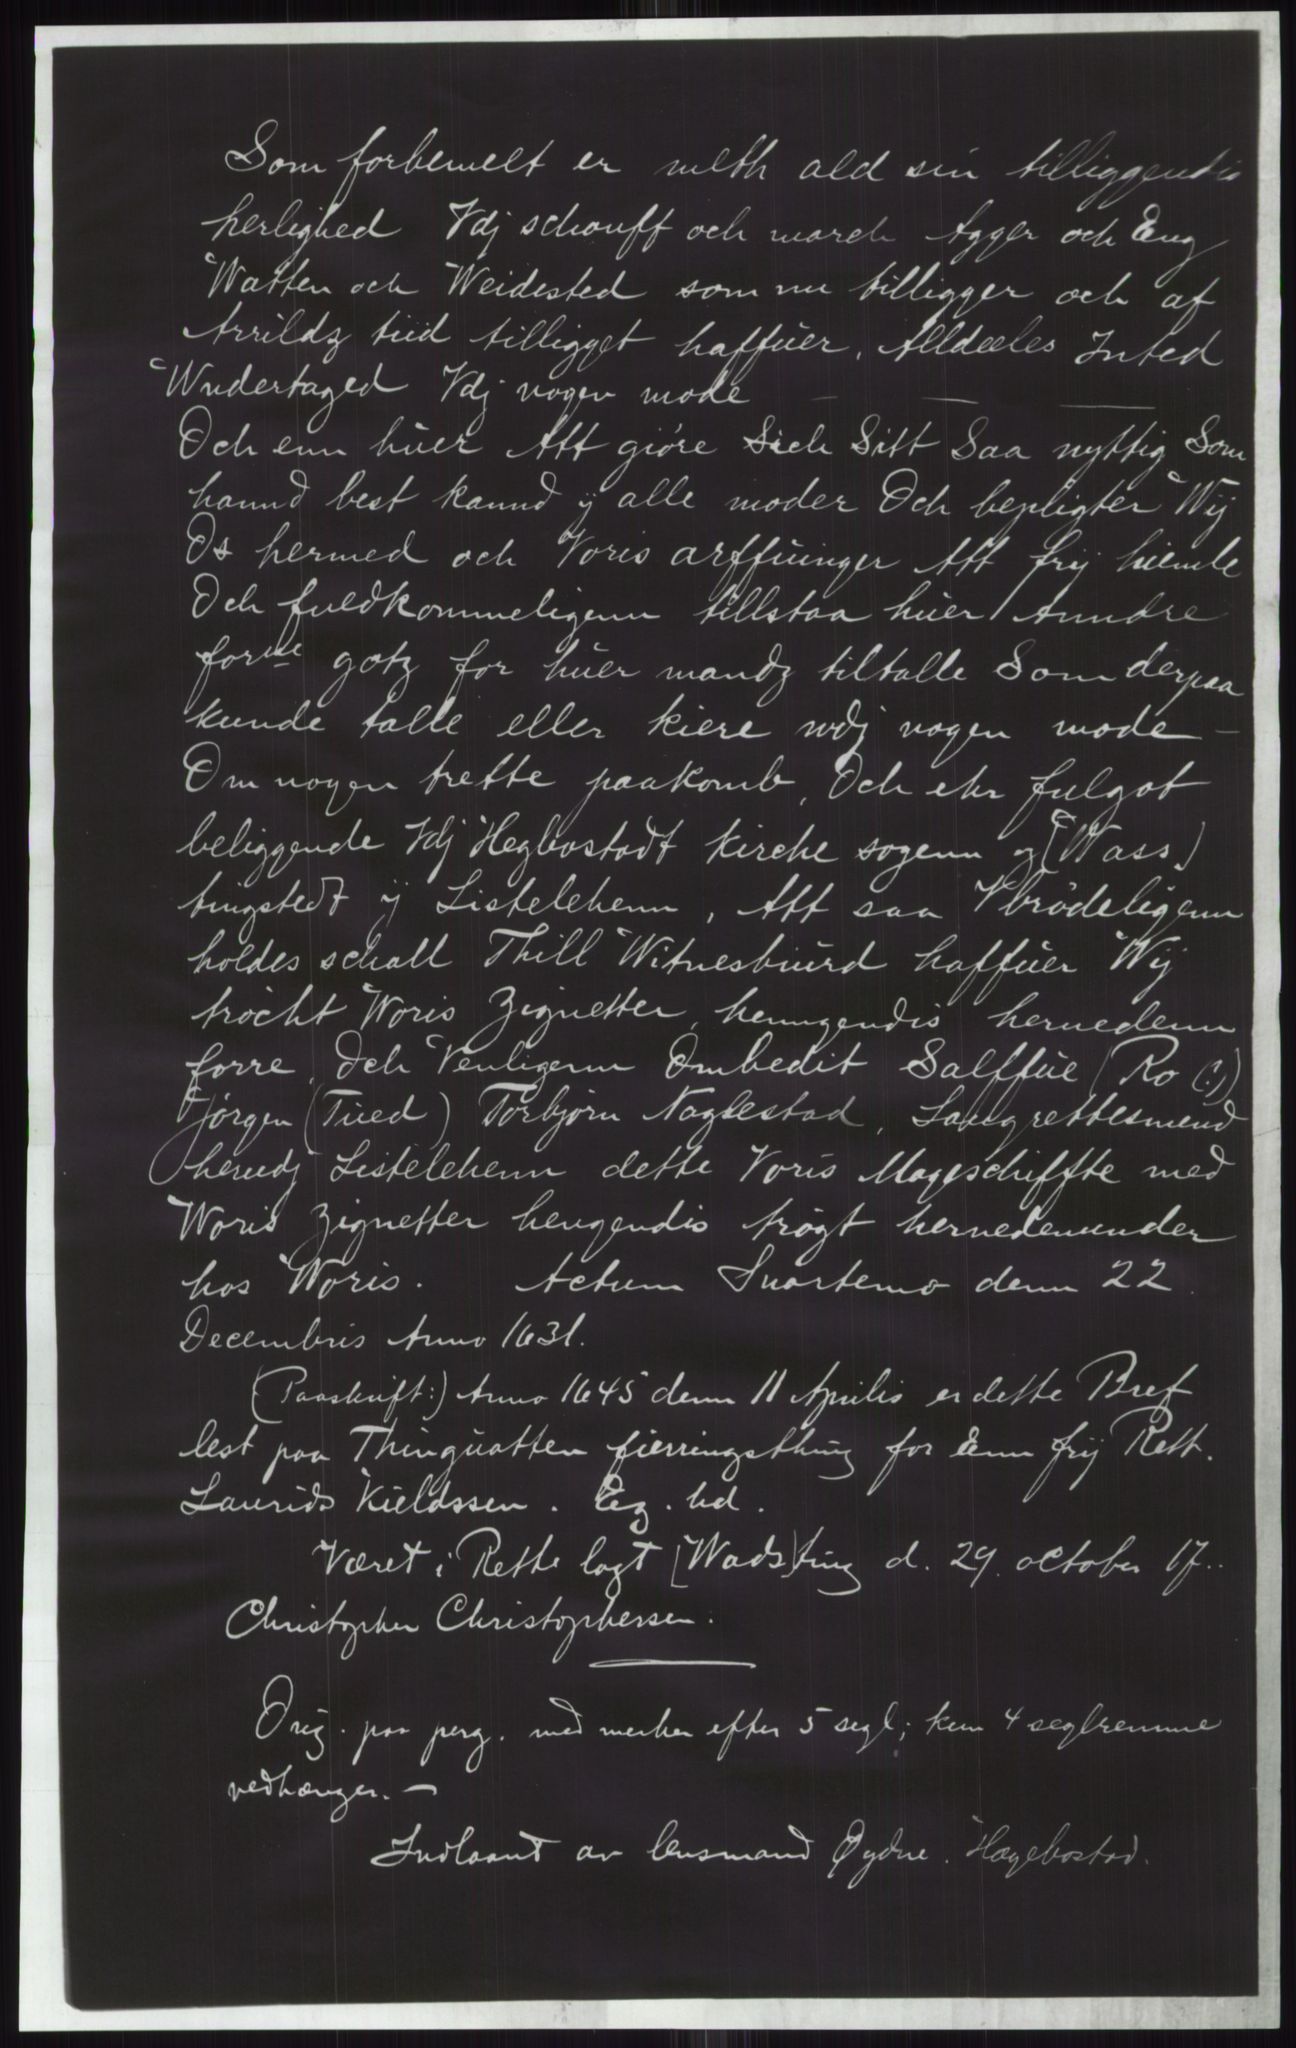 Som forbemelt er meth ald sin tilliggendis
herlighed Vdj schouff och march Agger och Eng
Watten och Weidested som nu tilligger och af
Arrildz tiid tilligget haffuer. Alldeeles Inted
Wndertaged Vdj nogen mode — — —
Och enn huer Att giöre Sich Sitt Saa nyttig Som
hannd best kannd ÿ alle moder Och bepligter Wij
Os hermed och Voris arffuinger Att frij hiemle
Och fuldkommeligenn tillstaa huer Anndre
forne gotz for huer mandz tiltalle Som derpaa
kunde talle eller kiere wdj nogen mode —
Om nogen trette paakomb, Och ehr fulgot
beliggende Vdj Hegbostadt kirche sogenn og [Wass]
tingstedt ÿ Listelehenn, Att saa Vbrödeligenn
holdes schall Thill Witnesbiurd haffuer Wij
tröcht Woris Zignetter henngendis hernedenn
forre, Och Venligenn Ombedit Salffue (Ro (:)
Jörgen (Tued) Torbjørn Naglestad, Laugrettesmend
herudj Listelehenn dette Voris Mageschiffte med
Woris Zignetter hengendis trögt hernedenunder
hos Woris. Actum Snartemo denn 22
Decembris Anno 1631.
(Paaskrift:) Anno 1645 denn 11 Aprilis er dette Bref
lest paa Thinguatten fierringsthing for Enn frij Rett.
Laurids Kieldssen. Eg. hd.
Været i Rette lagt [Wads]ting d. 29. october 17..
Christopher Christophersen.
Orig. paa perg. med merker efter 5 segl; kun 4 seglremme
vedhænger. —
Indlaant av lensmand Øydne. Hægebostad.